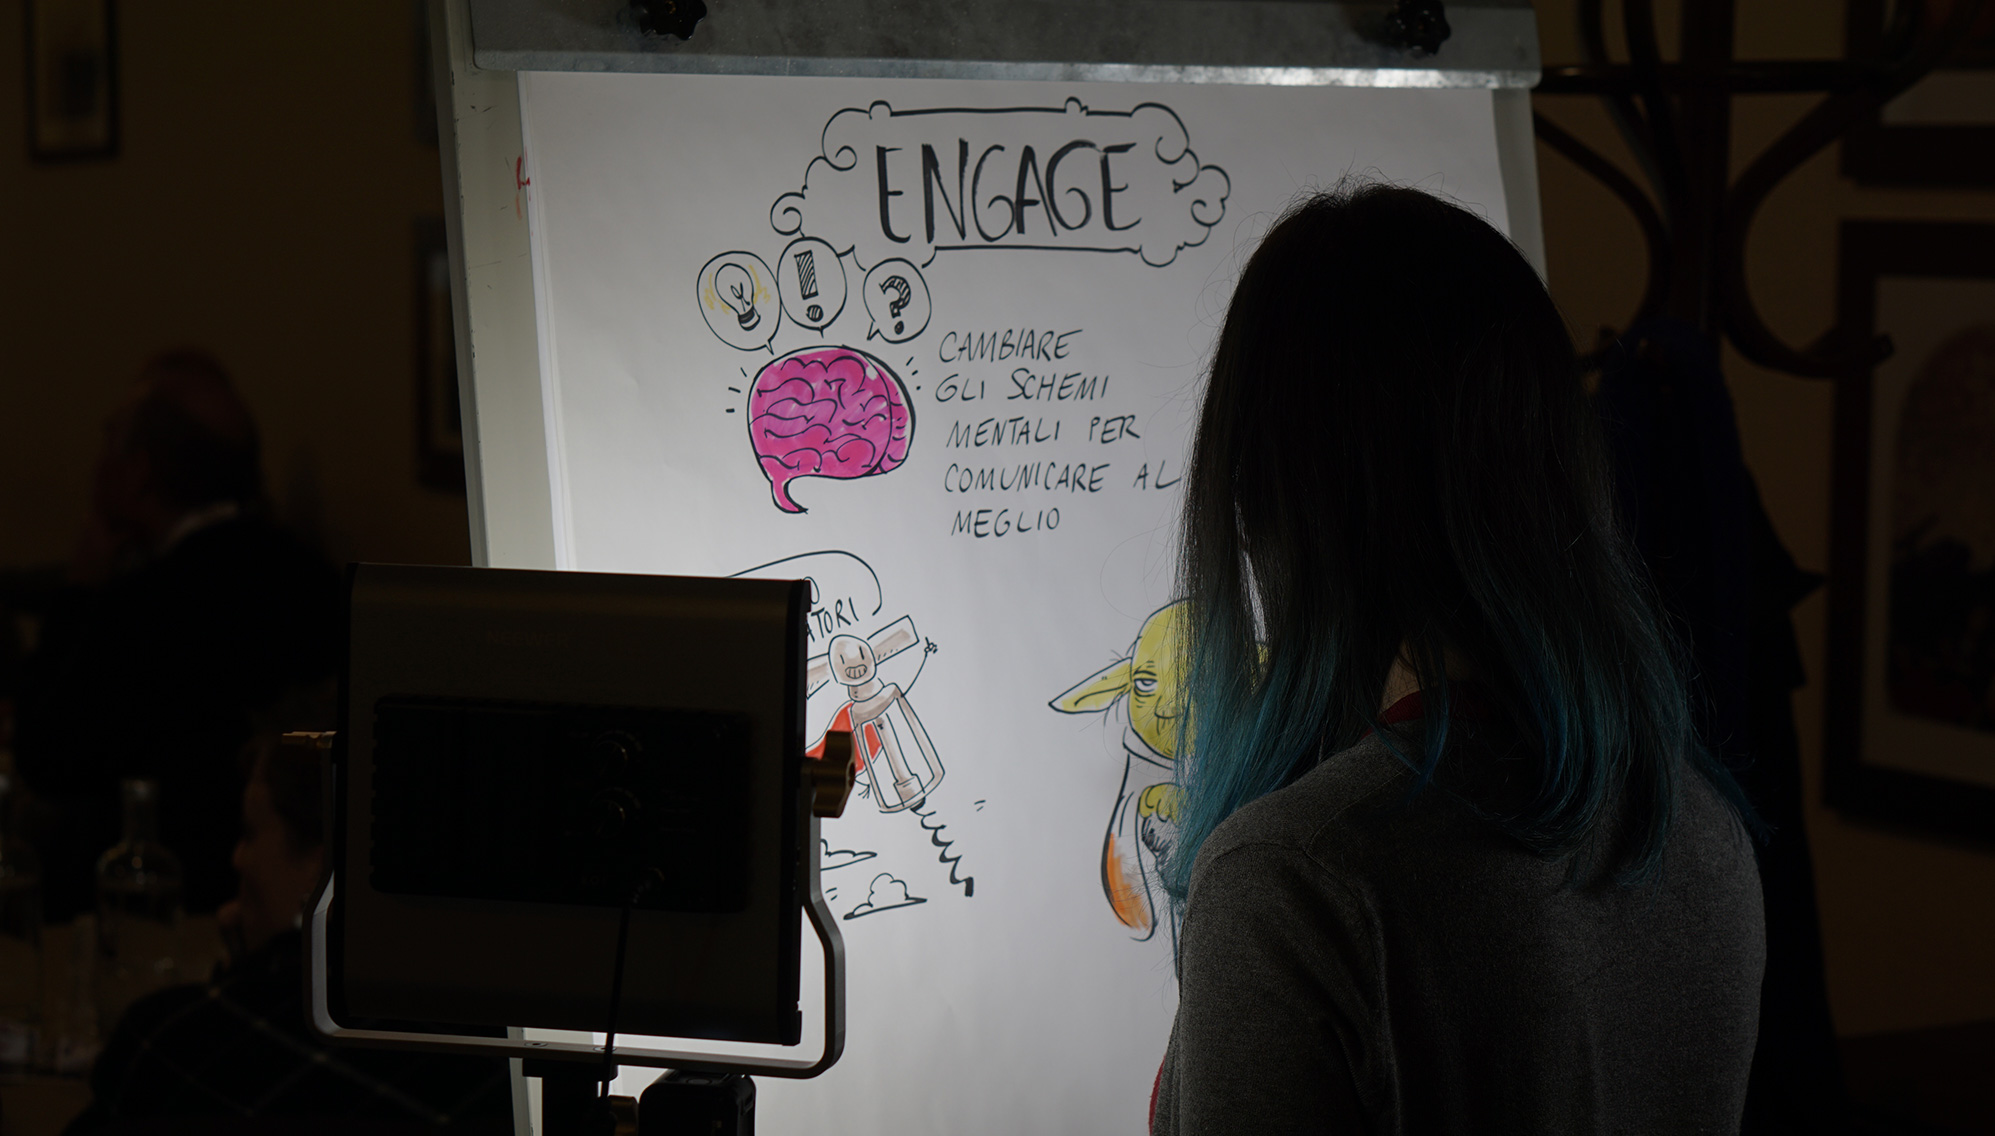 ENGAGE
!
?
CAMBIARE
GLI SCHEMI
MENTALI PER
COMUNICARE AL
MEGLIO